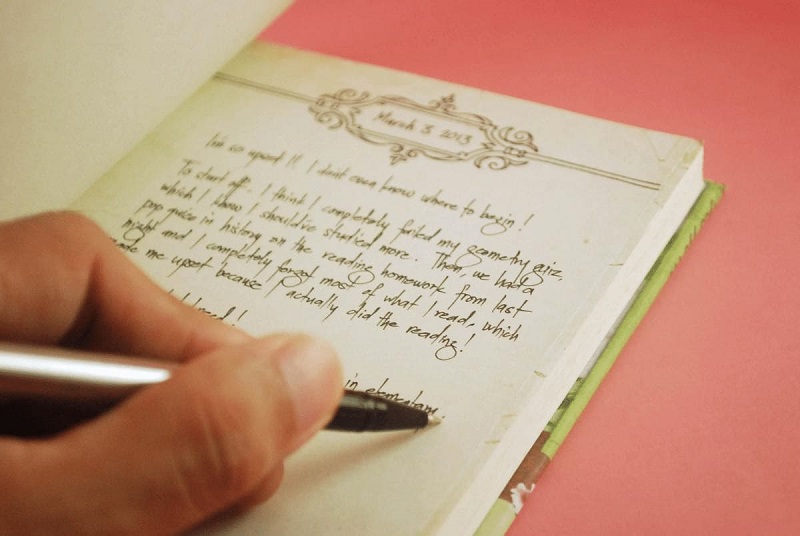 March 3 2013
I'm so upset!! I don't even know where to begin!
To start off.. I think I completely failed my geometry quiz,
which I know I should've studied more. Then, we had a
pop quiz in history on the reading homework from last
night and I completely forgot most of what I read, which
made me upset because I actually did the reading!
in elementary